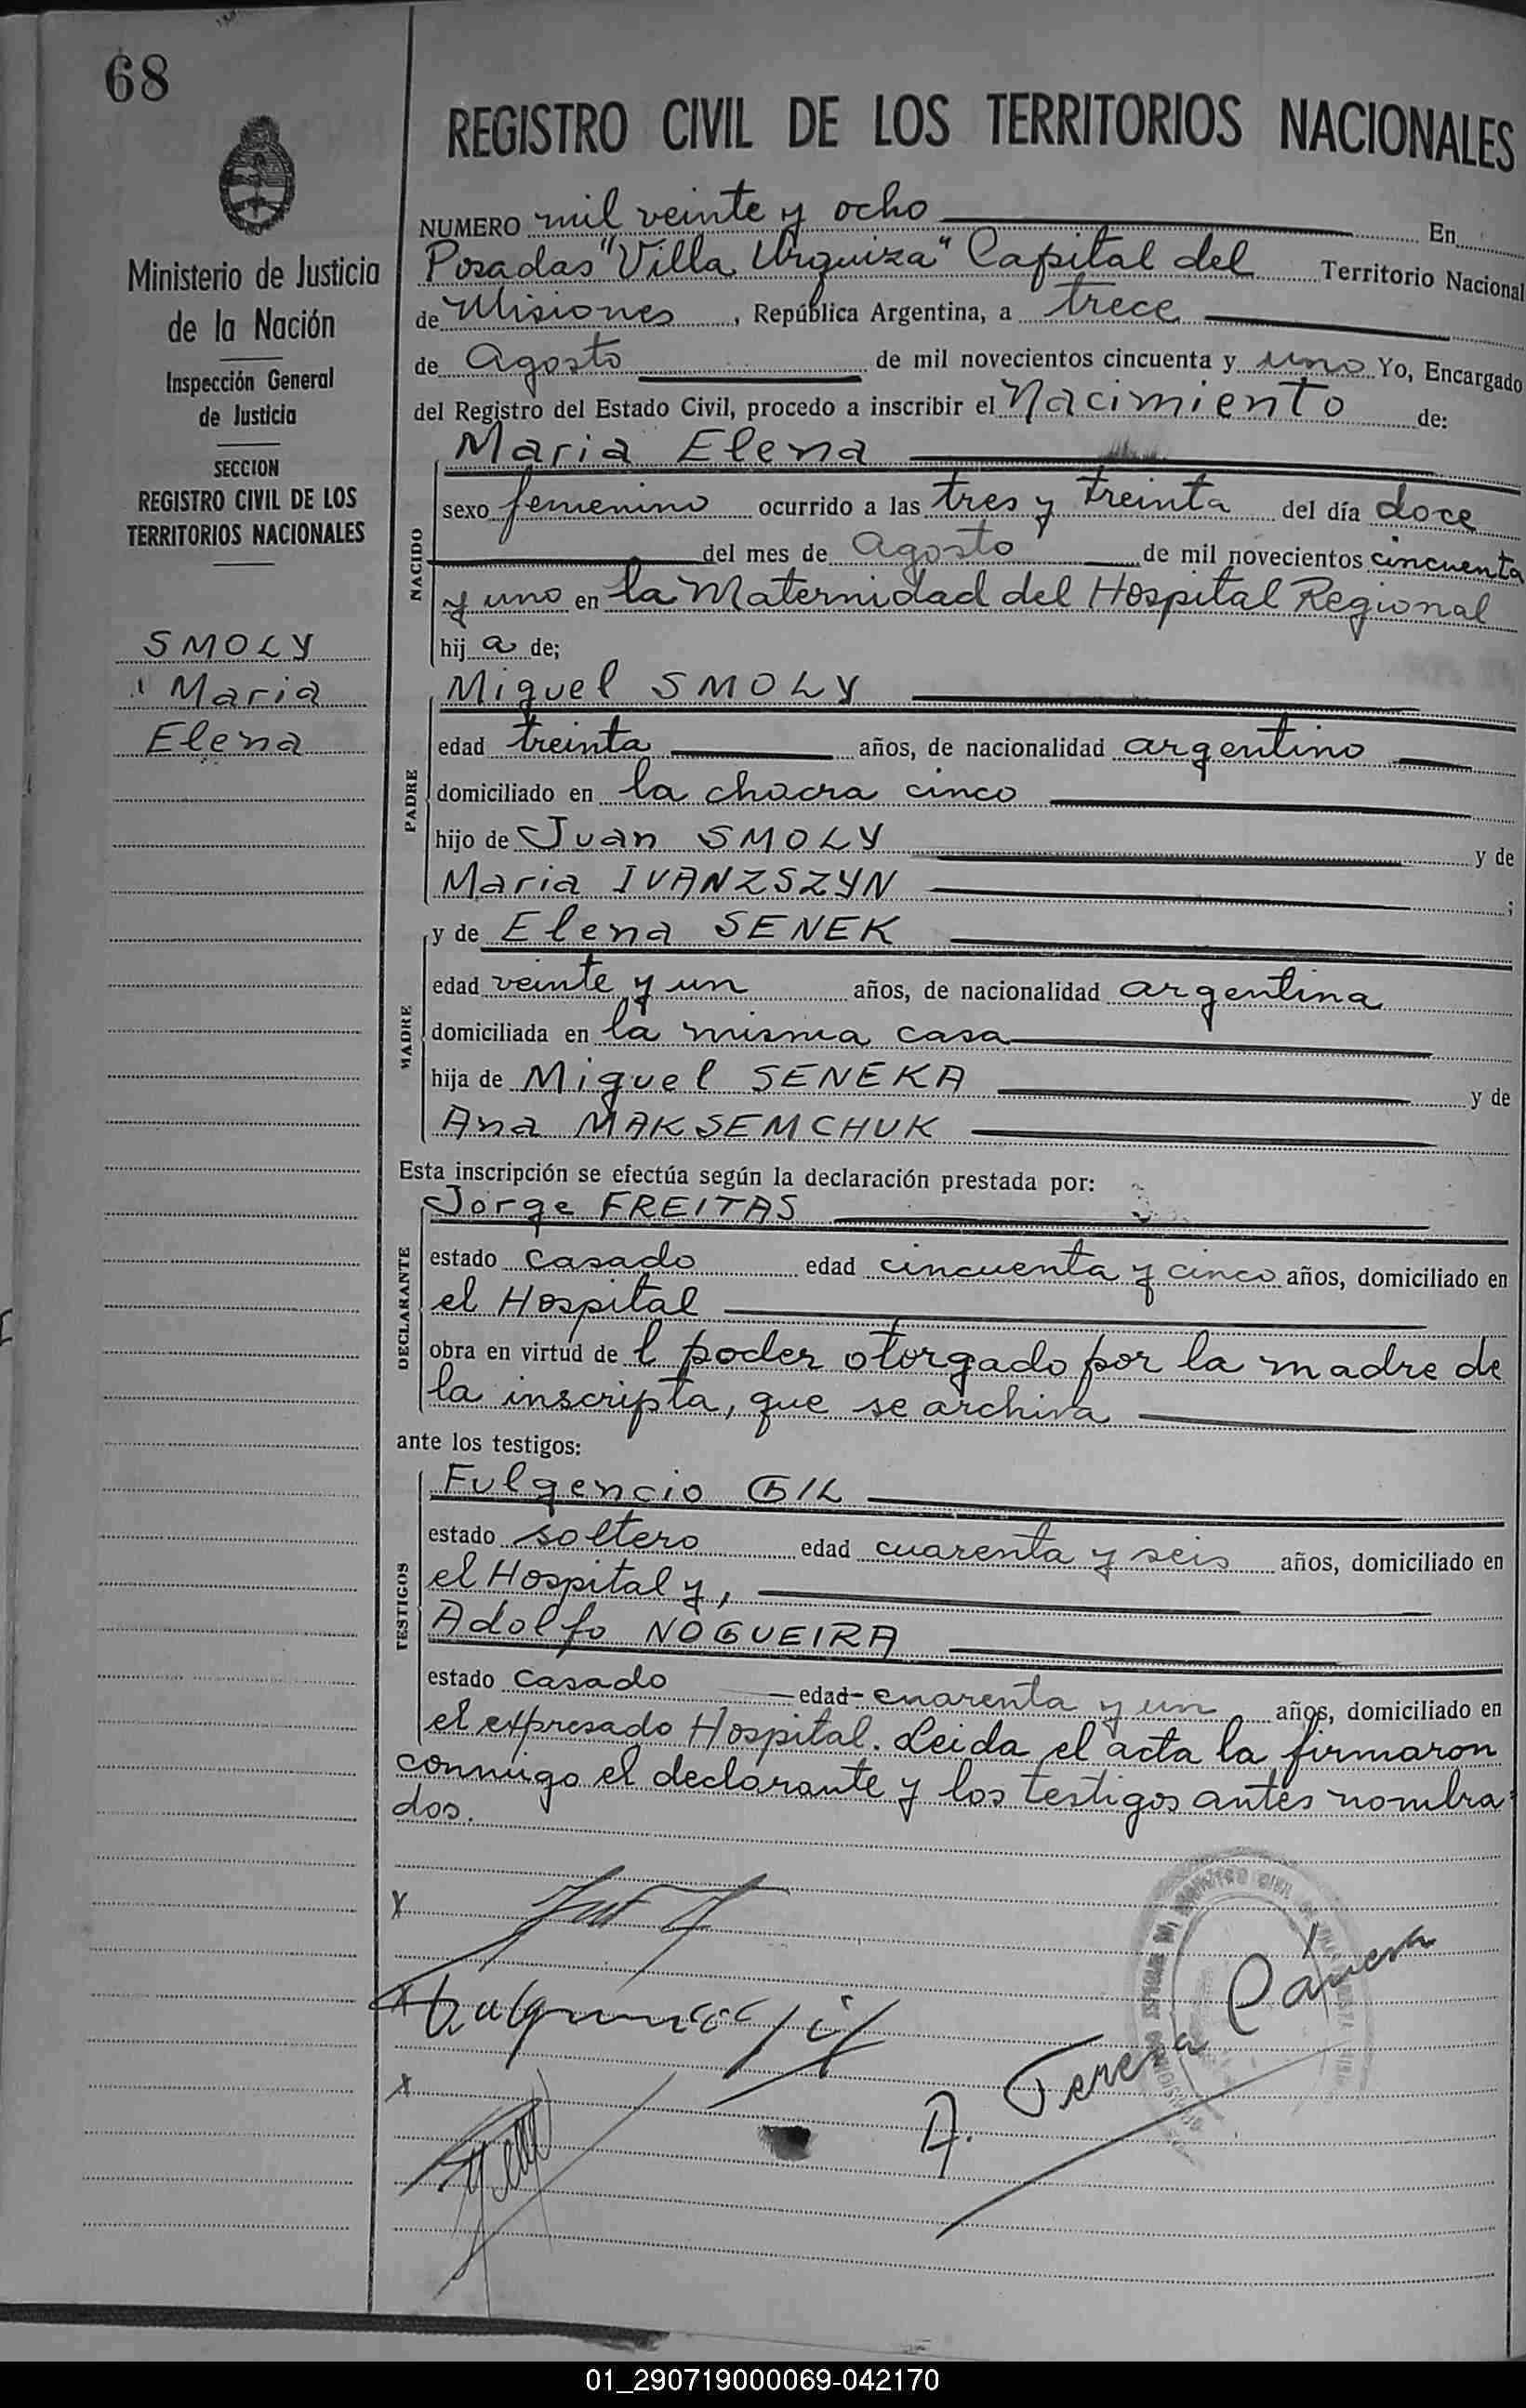 68
Ministerio de Justicia
de la Nación
Inspección General
de Justicia
SECCION
REGISTRO CIVIL DE LOS
TERRITORIOS NACIONALES
SMOLY
Maria
Elena
REGISTRO CIVIL DE LOS TERRITORIOS NACIONALES
NUMERO mil veinte y ocho En
Posadas "Villa Urquiza" Capital del Territorio Nacional
de Misiones, República Argentina, a trece
de Agosto de mil novecientos cincuenta y uno Yo, Encargado
del Registro del Estado Civil, procedo a inscribir el Nacimiento de:
Maria Elena
NACIDO
sexo femenino ocurrido a las tres y treinta del día doce
del mes de Agosto de mil novecientos cincuenta
y uno en la Maternidad del Hospital Regional
hij a de;
PADRE
Miguel SMOLY
edad treinta años, de nacionalidad argentino
domiciliado en la chacra cinco
hijo de Juan SMOLY y de
Maria IVANZSZYN ;
MADRE
y de Elena SENEK
edad veinte y un años, de nacionalidad argentina
domiciliada en la misma casa
hija de Miguel SENEKA y de
Ana MAKSEMCHUK
Esta inscripción se efectúa según la declaración prestada por:
DECLARANTE
Jorge FREITAS
estado casado edad cincuenta y cinco años, domiciliado en
el Hospital
obra en virtud de l poder otorgado por la madre de
la inscripta, que se archiva
ante los testigos:
TESTIGOS
Fulgencio GIL
estado soltero edad cuarenta y seis años, domiciliado en
el Hospital y,
Adolfo NOGUEIRA
estado casado edad cuarenta y un años, domiciliado en
el expresado Hospital. Leida el acta la firmaron
conmigo el declarante y los testigos antes nombra=
dos.
A. Teresa
01_290719000069-042170